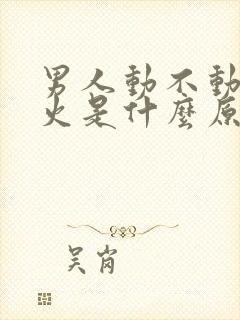 男人動不動
火是什麼原
吴肖